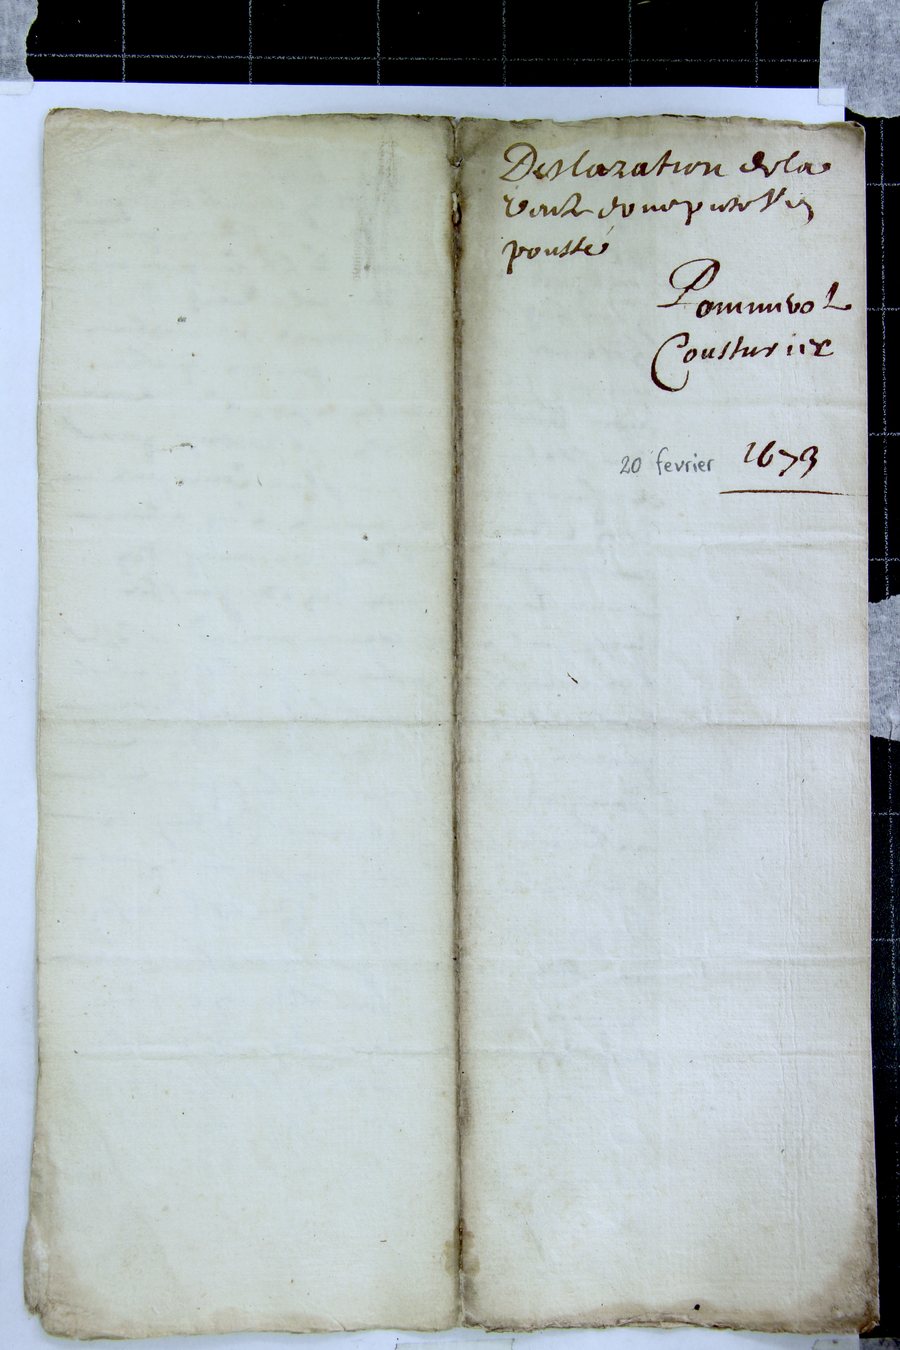 Desclaration de la
vente de
pousse
Pommerol
Cousturier
20 fevrier 1673